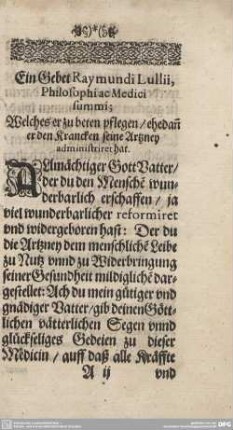 Ein Gebet Raymundi Lullii,
Philosophi ac Medici
summi;
Welches er zu beten pflegen / ehedañ
er den Krancken seine Artzney
administriret hat.
ALlmächtiger Gott Vatter /
der du den Menschē wun-
derbarlich erschaffen / ja
viel wunderbarlicher reformiret
vnd widergeboren hast: Der du
die Artzney dem menschlichē Leibe
zu Nutz vnnd zu Widerbringung
seiner Gesundheit mildiglichē dar-
gestellet: Ach du mein gütiger vnd
gnädiger Vatter / gib deinen Gött-
lichen vätterlichen Segen vnnd
glückseliges Gedeien zu dieser
Medicin / auff daß alle Kräffte
A ij vnd